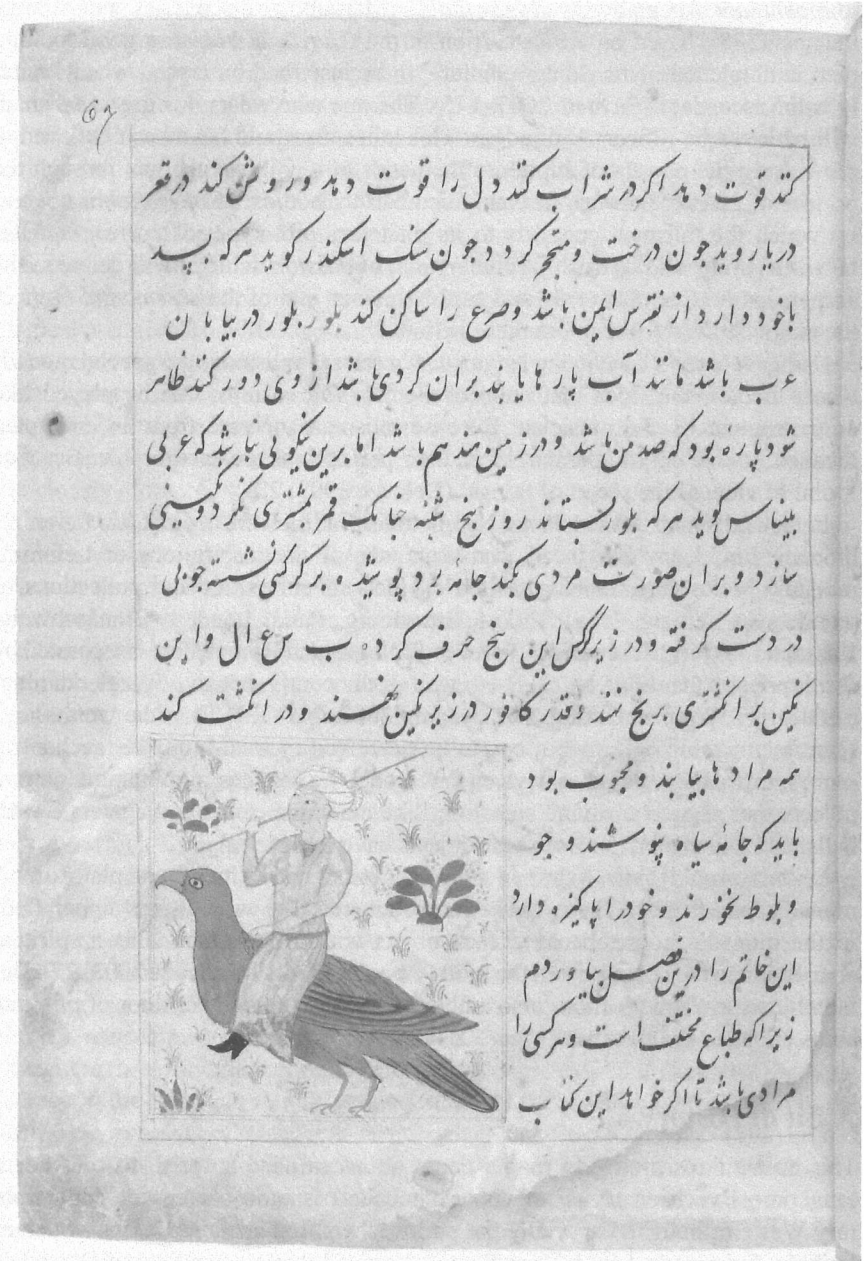 کند قوت دهد اکر در شراب کند دل را قوت دهد و روشن کند در قعر
دریا روید جون درخت و متحجر کردد جون سنک اسکندر کوید هرکه بسد
باخود دارد از نقرس ایمن باشد و صرع را ساکن کند بلور بلور در بیابان
عرب باشد مانند آب پارها یابند بران کردی باشد از وی دور کنند ظاهر
شود پاره بود که صد من باشد و در زمین هند هم باشد اما بدین نیکویی نباشد که عربی
بلیناس کوید هر که بلور بستاند روز پنج شنبه جنانک قمر بمشتری نکرد و نکینی
سازد و بران صورت مردی کند جامه زرد پوشیده بر کرکسی نشسته جوبی
در دست کرفته و در زیر کرکس این پنج حرف کرد ه ب س ع ال و این
نکین بر انکشتری برنج نهد و قدر کافور در زیر نکین نهند و در انکشت کند
همه مرادها بیابند و محبوب بود
باید که جامهٔ سیاه پوشند و جو
و بلوط نخورند و خود را پاکیزه دارد
این خاتم را درین فصل بیاوردم
زیرا که طباع مختلف است و هر کسی را
مرادی باشد تا اکر خواهد این کتاب